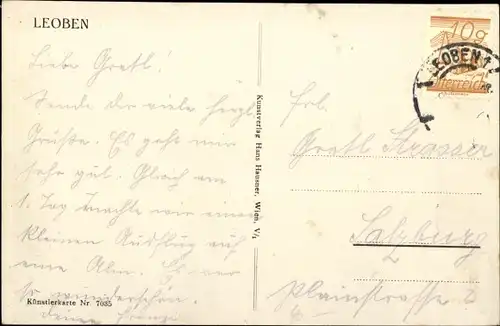 LEOBEN
Liebe Gretl!
Sende dir viele herzl.
Grüße. Es geht mir
sehr gut. Gleich am
1. Tag machte wir einen
kleinen Ausflug auf
eine Alm. Es war
so wunderschön.
Künstlerkarte Nr. 7035
Deine Franzi
Kunstverlag Hans Hausner, Wien, V/1
10g
LEOBEN 1
Österreich
Frl.
Gretl Strasser
Salzburg
Plainstrasse